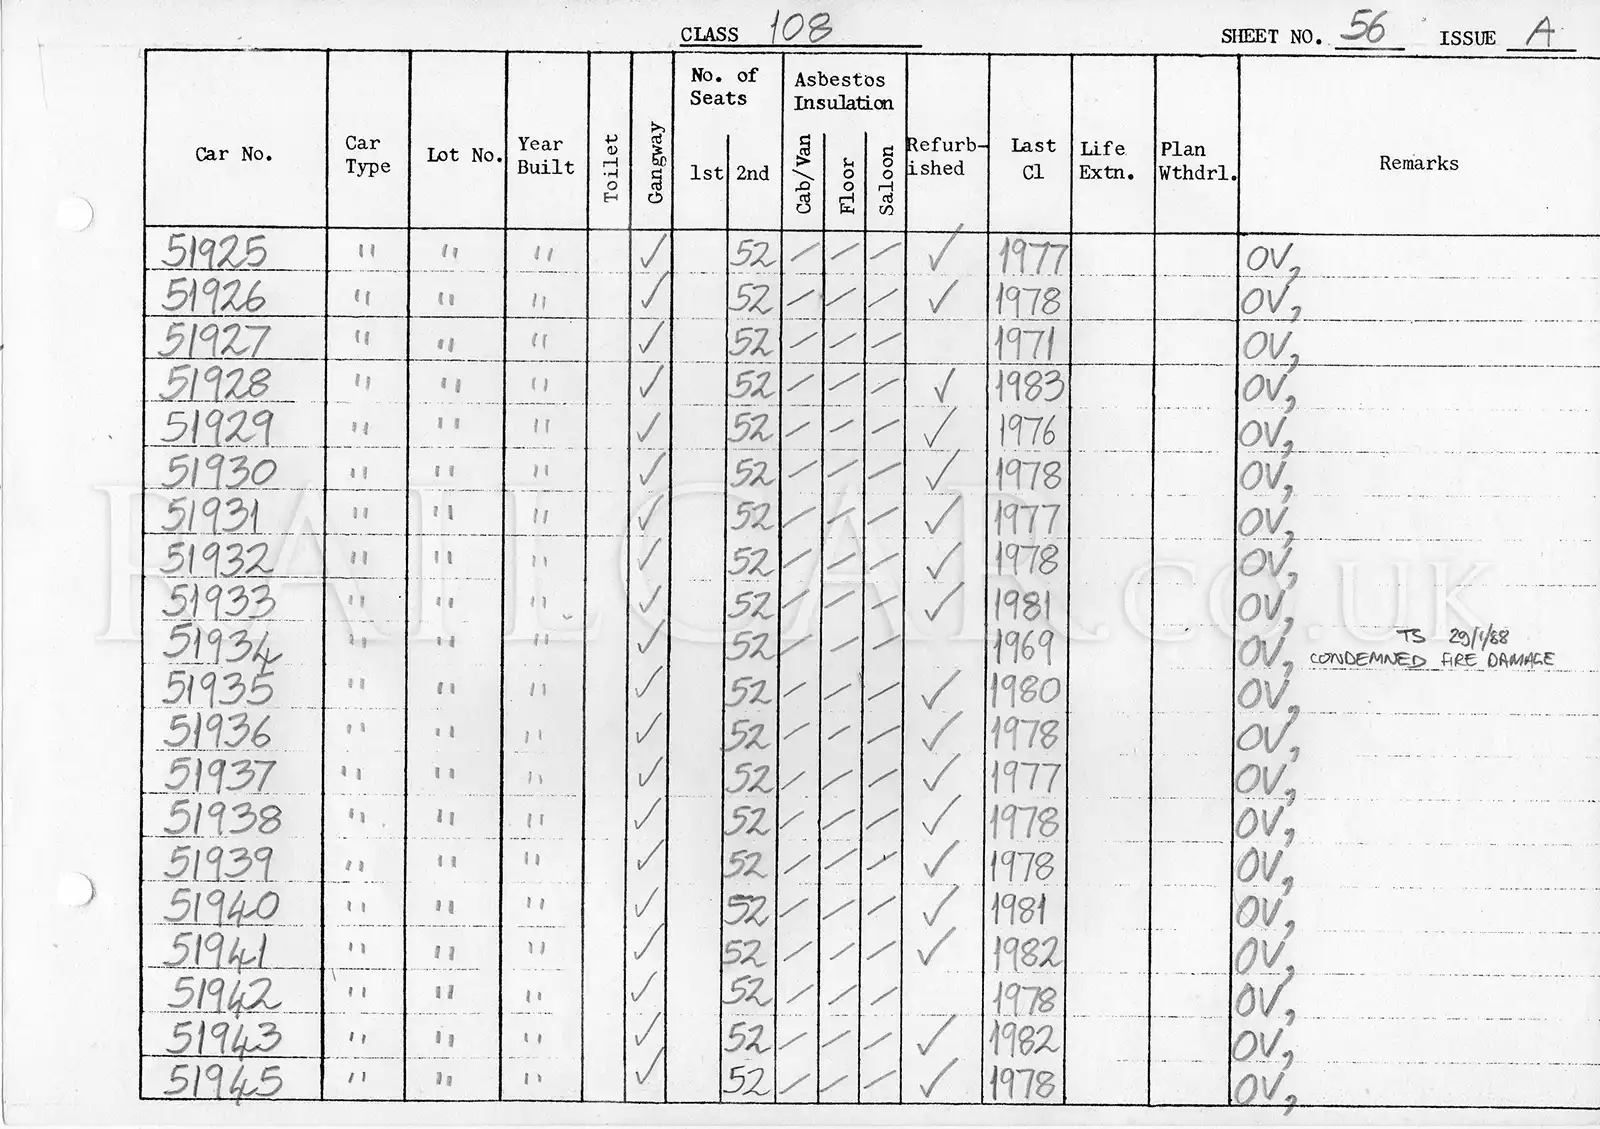 CLASS 108 SHEET NO. 56 ISSUE A
Car No. Car Type Lot No. Year Built Toilet Gangway No. of Seats 1st 2nd Asbestos Insulation Cab/Van Floor Saloon Refurb-ished Last Cl Life Extn. Plan Wthdrl. Remarks
51925 " " " ✓ 52 / / / ✓ 1977 OV,
51926 " " " ✓ 52 / / / ✓ 1978 OV,
51927 " " " ✓ 52 / / / 1971 OV,
51928 " " " ✓ 52 / / / ✓ 1983 OV,
51929 " " " ✓ 52 / / / ✓ 1976 OV,
51930 " " " ✓ 52 / / / ✓ 1978 OV,
51931 " " " ✓ 52 / / / ✓ 1977 OV,
51932 " " " ✓ 52 / / / ✓ 1978 OV,
RAILCAR.CO.UK
51933 " " " ✓ 52 / / / ✓ 1981 OV,
51934 " " " ✓ 52 / / / 1969 OV, TS 29/1/88
CONDEMNED FIRE DAMAGE
51935 " " " ✓ 52 / / / ✓ 1980 OV,
51936 " " " ✓ 52 / / / ✓ 1978 OV,
51937 " " " ✓ 52 / / / ✓ 1977 OV,
51938 " " " ✓ 52 / / / ✓ 1978 OV,
51939 " " " ✓ 52 / / / ✓ 1978 OV,
51940 " " " ✓ 52 / / / ✓ 1981 OV,
51941 " " " ✓ 52 / / / ✓ 1982 OV,
51942 " " " ✓ 52 / / / 1978 OV,
51943 " " " ✓ 52 / / / ✓ 1982 OV,
51945 " " " ✓ 52 / / / ✓ 1978 OV,